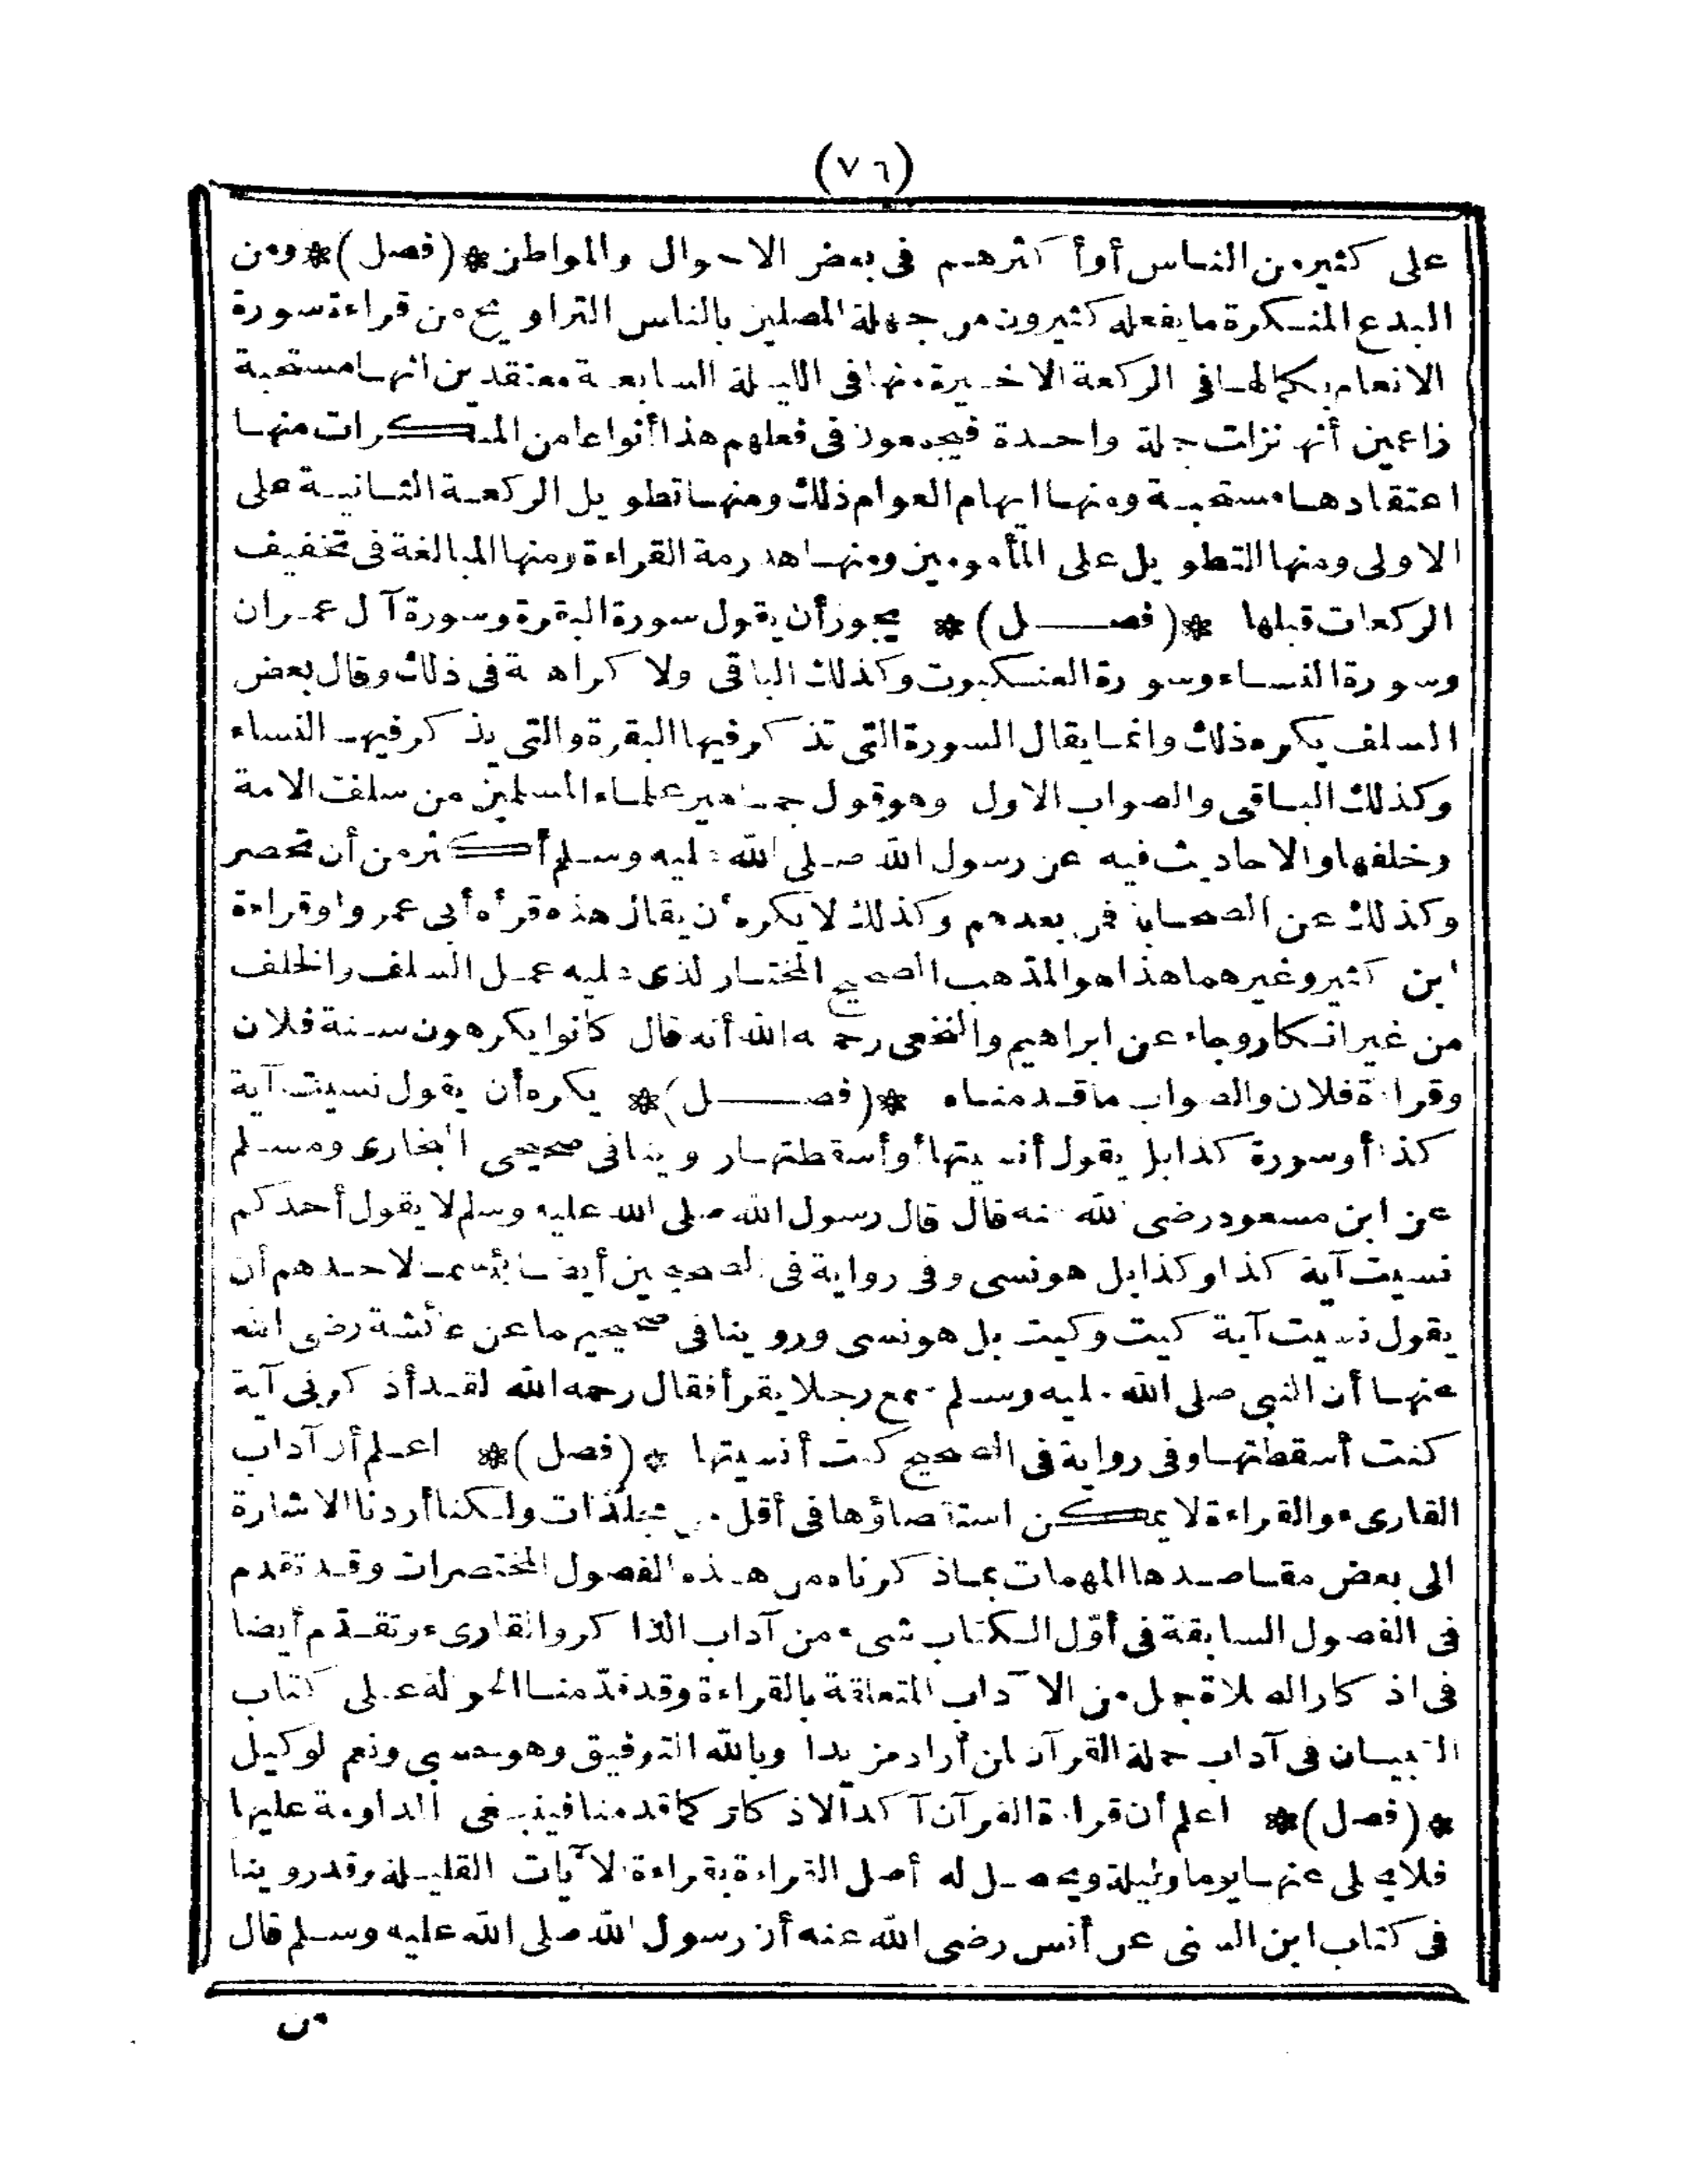 (٧٦)
على كثير من الناس أو أكثرهم فى بعض الاحوال والمواطن *(فصل)* ومن
البدع المنكرة ما يفعله كثيرون من جهلة المصلين بالناس التراويح من قراءة سورة
الانعام بكمالها فى الركعة الاخيرة منها فى الليلة السابعة معتقدين انها مستحبة
زاعمين أنها نزلت جملة واحدة فيجمعون فى فعلهم هذا أنواعا من المنكرات منها
اعتقادها مستحبة ومنها ايهام العوام ذلك ومنها تطويل الركعة الثانية على
الاولى ومنها التطويل على المأمومين ومنها هذرمة القراءة ومنها المبالغة فى تخفيف
الركعات قبلها *(فصل)* يجوز أن يقول سورة البقرة وسورة آل عمران
وسورة النساء وسورة العنكبوت وكذلك الباقى ولا كراهة فى ذلك وقال بعض
السلف يكره ذلك وانما يقال السورة التى تذكر فيها البقرة والتى يذكر فيها النساء
وكذلك الباقى والصواب الاول وهو قول جماهير علماء المسلمين من سلف الامة
وخلفها والاحاديث فيه عن رسول الله صلى الله عليه وسلم أكثر من أن تحصر
وكذلك عن الصحابة فمن بعدهم وكذلك لا يكره أن يقال هذه قرأه أبى عمرو او قراءة
ابن كثير وغيرهما هذا هو المذهب الصحيح المختار الذى عليه عمل السلف والخلف
من غير انكار وجاء عن ابراهيم والنخعى رحمه الله أنه قال كانوا يكرهون سنة فلان
وقراءة فلان والصواب ما قدمناه *(فصل)* يكره أن يقول نسيت آية
كذا أو سورة كذا بل يقول أنسيتها أو أسقطتها روينا فى صحيحى البخارى ومسلم
عن ابن مسعود رضى الله عنه قال قال رسول الله صلى الله عليه وسلم لا يقول أحدكم
نسيت آية كذا وكذا بل هو نسى وفى رواية فى الصحيحين أيضا بئسما لاحدهم أن
يقول نسيت آية كيت وكيت بل هو نسى وروينا فى صحيحيهما عن عائشة رضى الله
عنها أن النبى صلى الله عليه وسلم سمع رجلا يقرأ فقال رحمه الله لقد أذكرنى آية
كنت أسقطتها وفى رواية فى الصحيح كنت أنسيتها *(فصل)* اعلم أن آداب
القارىء والقراءة لا يمكن استقصاؤها فى أقل من مجلدات ولكنا أردنا الاشارة
الى بعض مقاصدها المهمات بما ذكرناه من هذه الفصول المختصرات وقد تقدم
فى الفصول السابقة فى أوّل الكتاب شىء من آداب الذاكر والقارىء وتقدّم أيضا
فى اذكار الصلاة جمل من الآداب المتعلقة بالقراءة وقد قدّمنا الحوالة على كتاب
التبيان فى آداب حملة القرآن لمن أراد مزيدا وبالله التوفيق وهو حسبى ونعم الوكيل
*(فصل)* اعلم أن قراءة القرآن آكد الاذكار كما قدمنا فينبغى المداومة عليها
فلا يخلى عنها يوما وليلة ويحصل له أصل القراءة بقراءة الآيات القليلة وقد روينا
فى كتاب ابن السنى عن أنس رضى الله عنه أن رسول الله صلى الله عليه وسلم قال
من